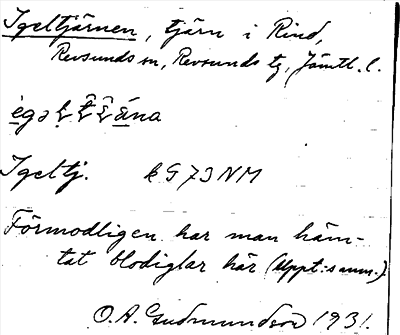 Igeltjärnen, tjärn i Rind,
Revsunds sn, Revsunds tg, Jämtl. l.
Igeltj. kG73NM
Förmodligen har man häm-
tat blodiglar här (Uppt:s anm.)
O.A. Gudmundson 1931.